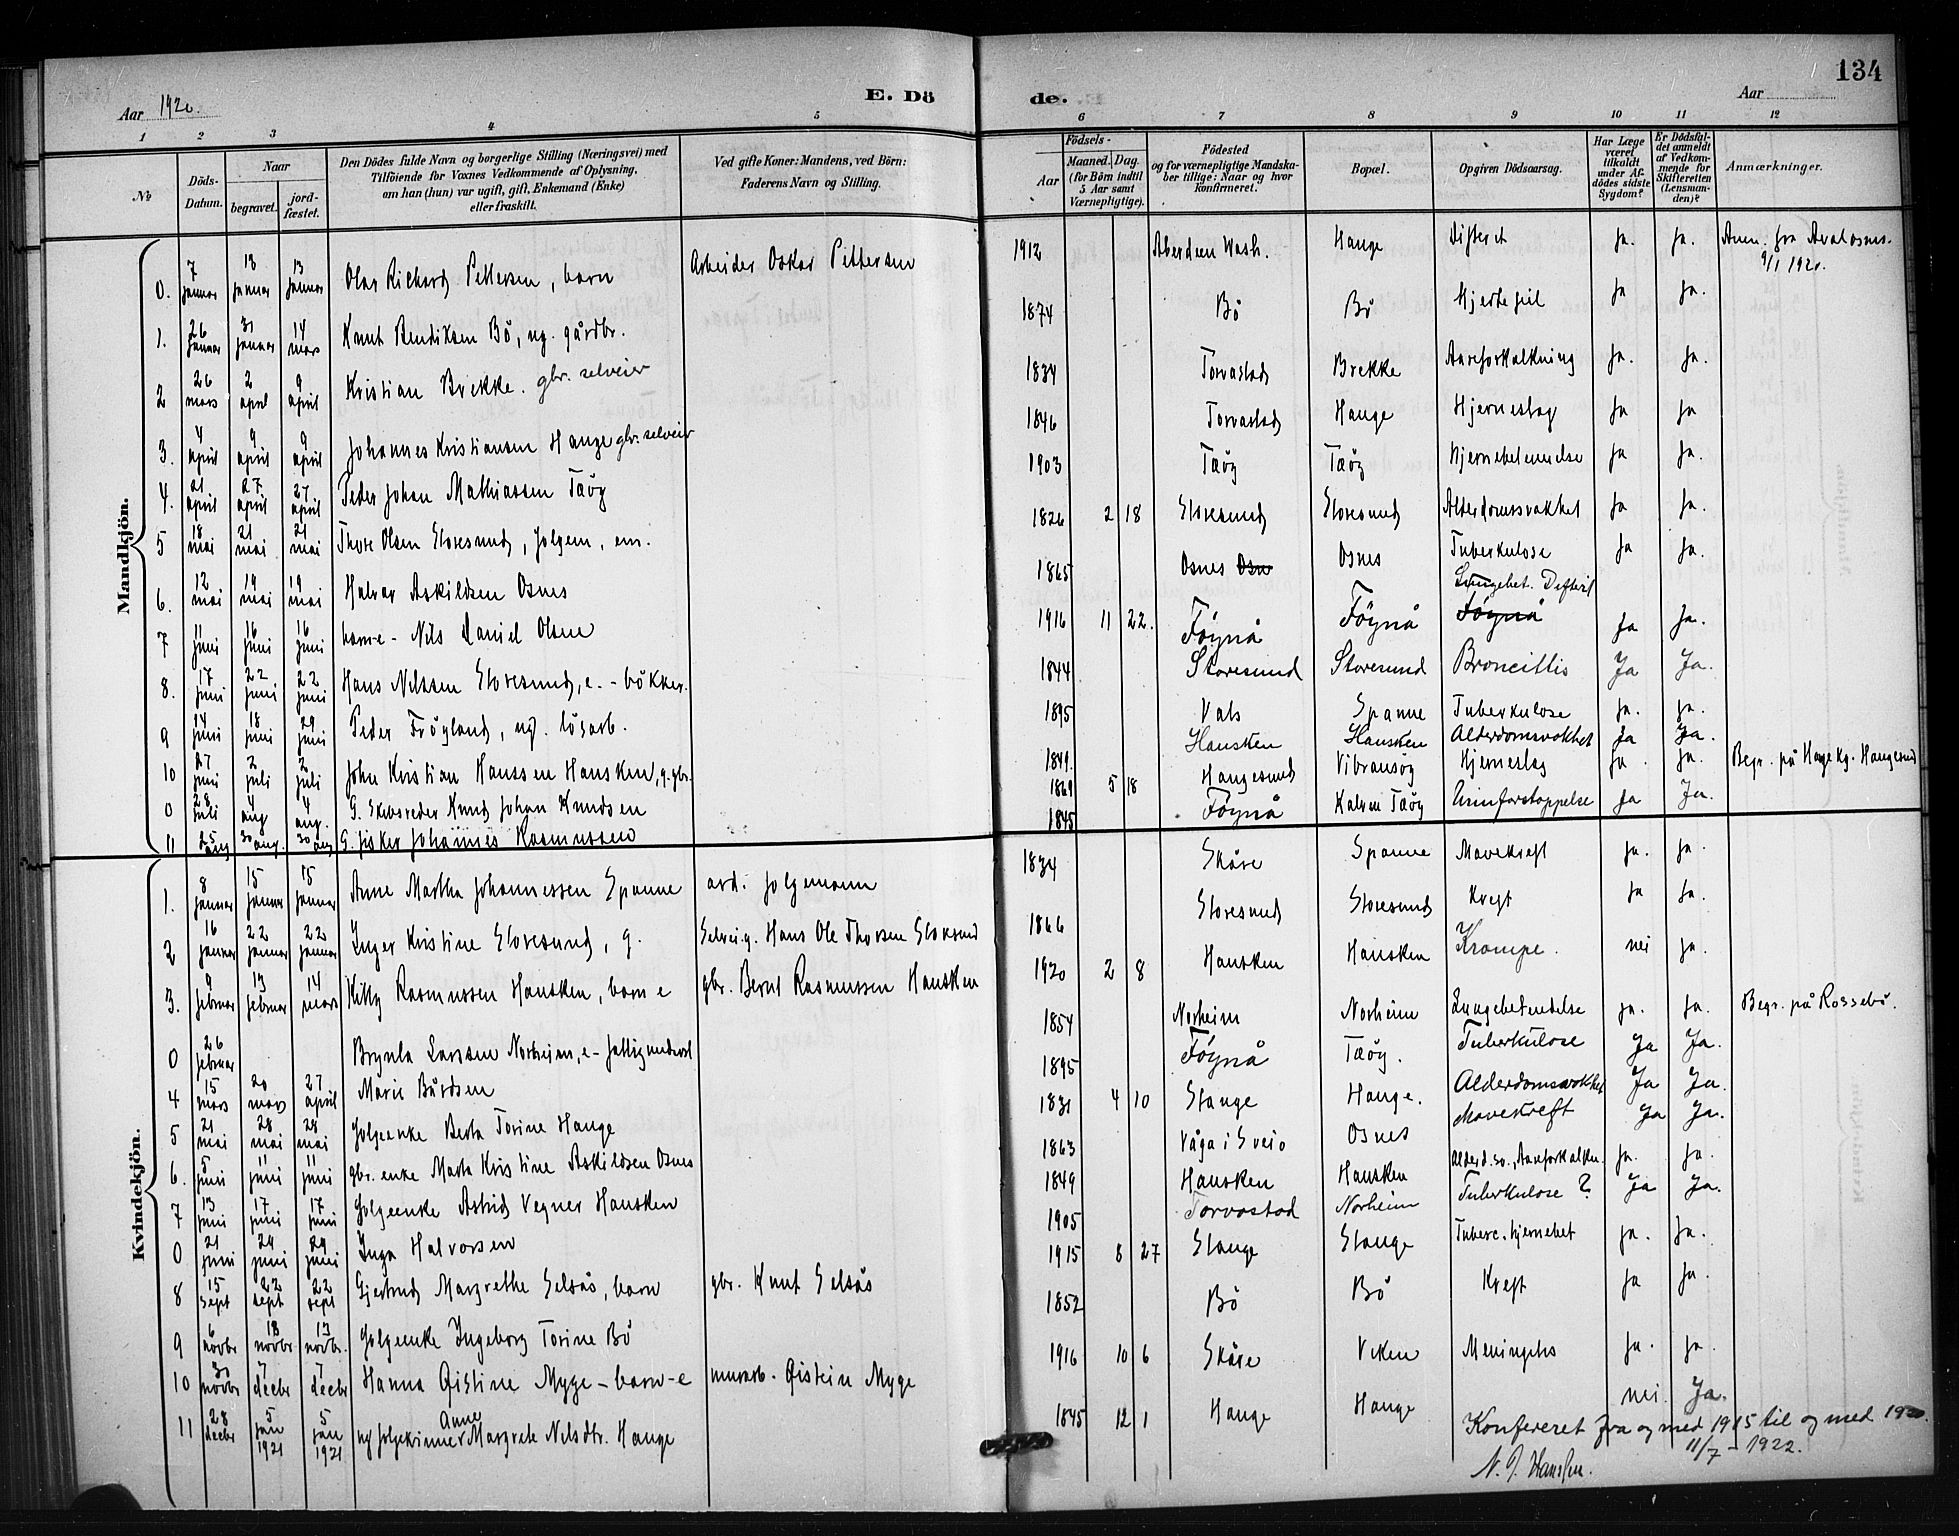 134
Aar 1920. E. Dö de. Aar
1 2 3 4 5 6 7 8 9 10 11 12
No
Döds-Datum.
Naar
begravet.
jordfæstet.
Den Dödes fulde Navn og borgerlige Stilling (Næringsvei) med
Tilföiende for Voxnes Vedkommende af Oplysning,
om han (hun) var ugift, gift, Enkemand (Enke)
eller fraskilt.
Ved gifte Koner: Mandens, ved Börn:
Faderens Navn og Stilling.
Födsels-
Aar
Maaned. Dag.
(for Börn indtil
5 Aar samt
Værnepligtige).
Födested
og for værnepligtige Mandska-
ber tillige: Naar og hvor
konfirmeret.
Bopæl.
Opgiven Dödsaarsag.
Har Læge
været
tilkaldt
under Af-
dödes sidste
Sygdom?
Er Dödsfal-
det anmeldt
af Vedkom-
mende for
Skifteretten
(Lensman-
den)?
Anmærkninger.
Mandkjön.
0. 7 januar 13 januar 13 januar Olav Rickard Pettersen, barn Arbeider Oskar Pettersen 1912 Aberdeen Wash. Hauge Difterit ja. ja. Anm. fra Avaldsnes 9/1 1920.
1. 26 januar 31 januar 14 mars Knut Bendiksen Bö, ug. gårdbr. 1874 Bö Bö Hjertefeil ja ja.
2 26 mars 2 april 9 april Kristian Brekke. gbr. selveier 1834 Torvastad Brekke Aareforkalkning ja. ja.
3. 4 april 9 april 9 april Johannes Kristiansen Hauge gbr. selveier 1846 Torvastad Hauge Hjerneslag ja ja
4. 21 april 27 april 27 april Peder Johan Mathiassen Taög 1903 Taög Taög Hjernebetendelse ja ja.
5 18 mai 21 mai 21 mai Thore Olsen Storesund, folgem, em. 1826 2 18 Storesund Storesund Alderdomssvakhet ja ja.
6. 12 mai 19 mai 19 mai Halvar Askildsen Osnes 1865 Osnes Osn Osnes Tuberkulose ja ja.
7 11 juni 16 juni 16 juni barn-e- Nils Daniel Olsen 1916 11 22. Föynå Föynå Lungebet. Difterit Föynå ja ja.
8. 17 juni 22 juni 22 juni Hans Nilssen Storesund, e. - bökker. 1844 Storesund Storesund Broncittis Ja Ja.
9 14 juni 18 juni 29 juni Peder Fröyland, ug. lösarb. 1895 Vats Spanne Tuberkulose ja. ja.
10 27 juni 2 juli 2 juli John Kristian Hanssen Hausken, g. gbr. 1849. Hausken Hausken Alderdomsvakhet Ja Ja.
0 28 juli 4 aug 4 aug. G. Skibsreder Knud Johan Knudsen 1869 5 18 Haugesund Vibransöy Hjerneslag ja. ja. Begr. på Hauge kg. Haugesund
11 25 aug 30 aug. 30 aug G. fisker Johannes Rasmussen 1845 Föynå Kalven Taög Urinforstoppelse ja Ja.
Kvindekjön.
1. 8 januar 15 januar 15 januar Anne Martha Johannessen Spanne avd. folgemann 1834 Skåre Spanne Mavekreft ja. ja.
2 16 januar 22 januar 22 januar Inger Kristine Storesund, g. Selveig. Hans Ole Thorsen Storesund 1866 Storesund Storesund Kreft ja ja.
3. 9 februar 13 februar 14 mars Kitty Rasmussen Hausken, barn e gbr. Bernt Rasmussen Hausken 1920 2 8 Hausken Hausken Krampe. nei ja.
0 26 februar Brynla Larssen Norheim, e- fattigunderst 1854 Norheim Norheim Lungebetendelse ja. ja. Begr. på Rossebö.
4 15 mars 20 mars 27 april Marie Bårdsen 1895 Föynå Taög. Tuberkulose Ja Ja.
5 21 mai 28 mai 28 mai Folgeenke Berta Torine Hauge 1831 4 10 Stange Hauge. Alderdomsvakhet Ja Ja.
6. 5 juni 11 juni 11 juni gbr. enke Marta Kristine Askildsen Osnes 1863 Våga i Sveio Osnes Mavekreft Ja Ja.
7 13 juni 17 juni 17 juni Folgeenke Astrid Vegner Hausken 1849 Hausken Hausken Alderd. sv., Aareforkalkn. ja. ja.
0 21 juni 24 juni 24 juni Inga Halvorsen 1905 Torvastad Norheim Tuberkulose ? Ja Ja.
8 15 sept 22 sept 22 sept Gjertrud Margrethe Gelsås, barn gbr. Knut Gelsås 1915 8 27 Stange Stange Tuberc. hjernebet ja. ja.
9 6 novbr 13 novbr 13 novbr. Folgeenke Ingeborg Torine Bö 1852 Bö Bö Kreft ja ja.
10 30 novbr 7 decbr 7 decbr Hanna Qistine Myge - barn-e murarb. Qistein Myge 1916 10 6 Skåre Viken Meningitis ja. ja.
11 28 decbr 5 jan 1921 5 jan 1921 ug folgekinne Anne Margrete Nilsdtr. Hauge 1845 12 1 Hauge Hauge nei Ja.
Konfereret fra og med 1915 til og med 1920.
11/7 - 1922.